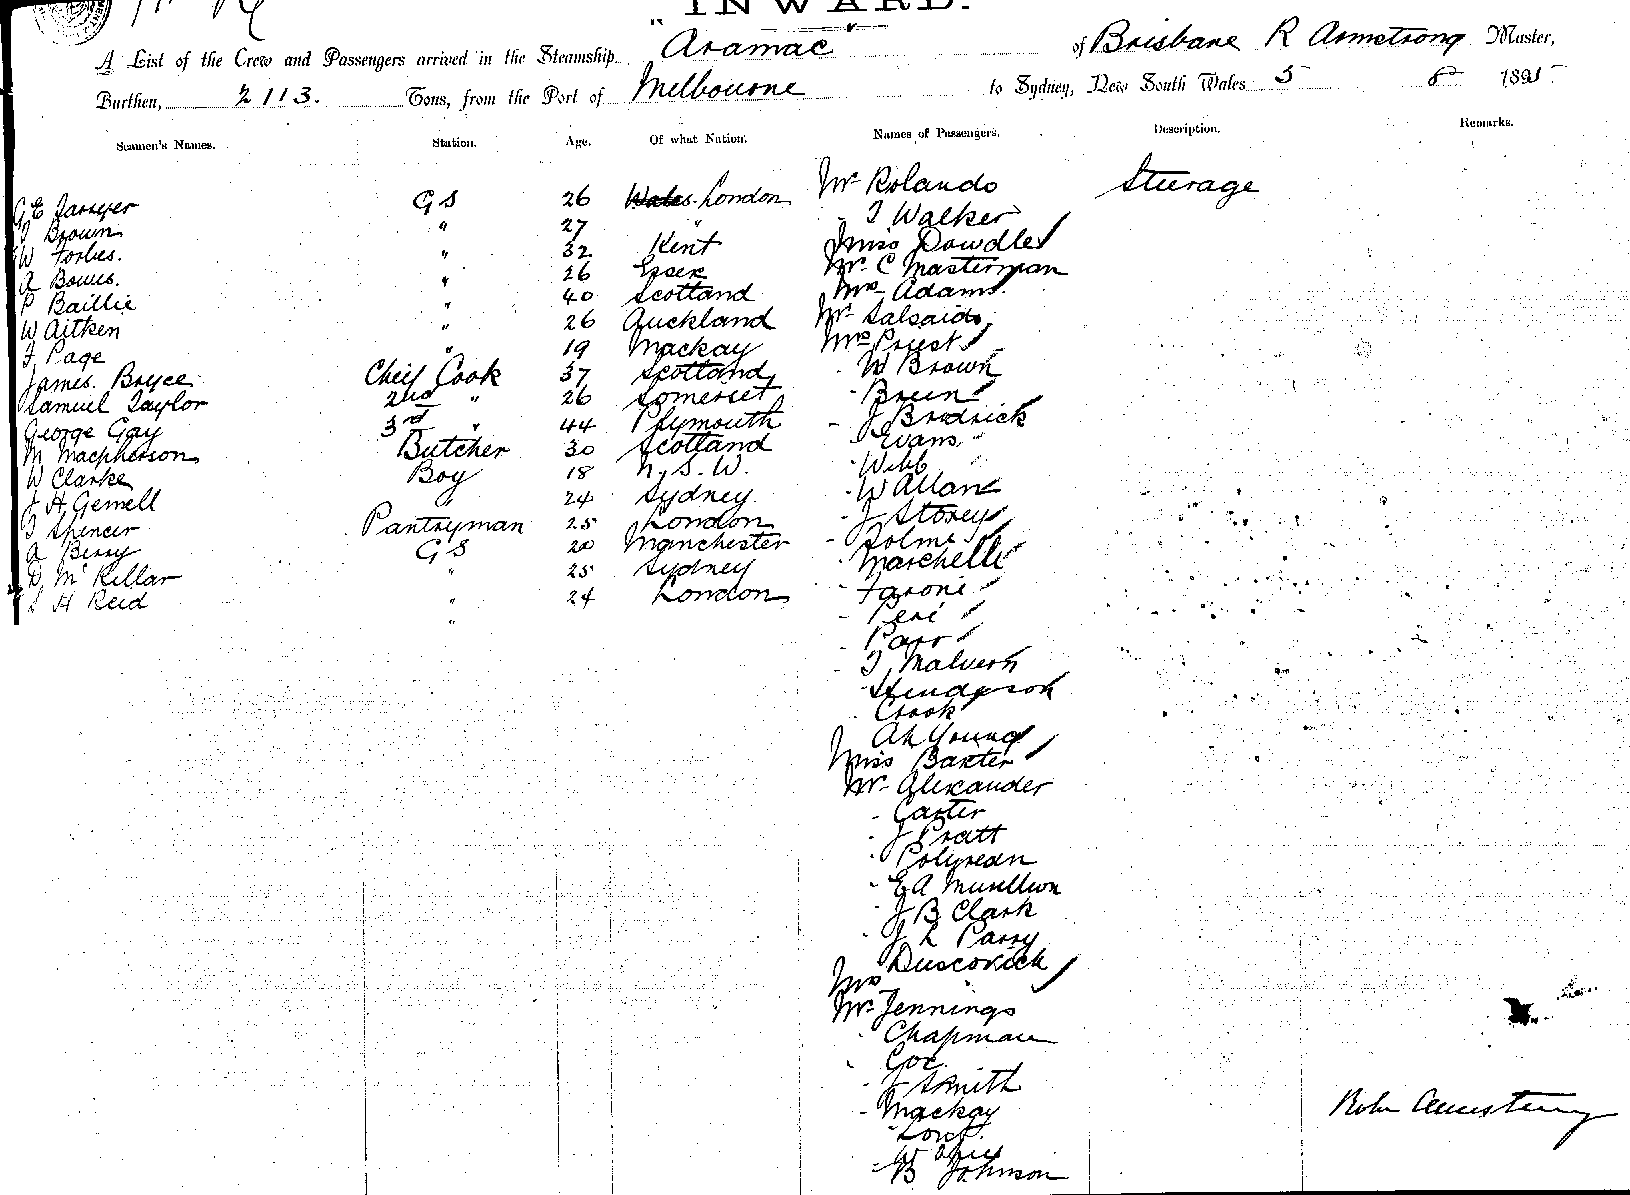 INWARD.
A List of the Crew and Passengers arrived in the Steamship Aramac of Brisbane R Armstrong Master,
Burthen, 2113. Tons, from the Port of Melbourne to Sydney, New South Wales 5 8 1895
Seamen's Names. Station. Age. Of what Nation. Names of Passengers. Description. Remarks.
G E GS 26 Wales London Mr Rolando Steerage
Brown " 27 " " T Walker
W Forbes. " 32 Kent Miss Dowdle
A Bowes. " 26 Essex Mr C Masterman
P Baillie " 40 Scotland Mrs Adams
W Aitken " 26 Auckland Mr Salsaido
Page " 19 Mackay Mrs Priest
James Boyce Chief Cook 37 Scotland W Brown
Samuel Taylor 2nd " 26 Somerset Breen
George Gay 3rd " 44 Plymouth J Brodrick
M Macpherson Butcher 30 Scotland Evans
W Clarke Boy 18 N.S.W. Webb
J H Gemell 24 Sydney W Allan
Spencer Pantryman 25 London J Storey
A Berry GS 20 Manchester Solme
D McKillar " 25 Sydney Marchelli
S H Reid " 24 London Faroni
" Peri
Parr
T Malvern
Henderson
Crook
Ah Young
Miss Baxter
Mr Alexander
Carter
J Pratt
E A
J B Clark
J L Parry
Mrs Duscovich
Mr Jennings
Chapman
Cox
J Smith
Mackay
W
B Johnson
Robt Armstrong